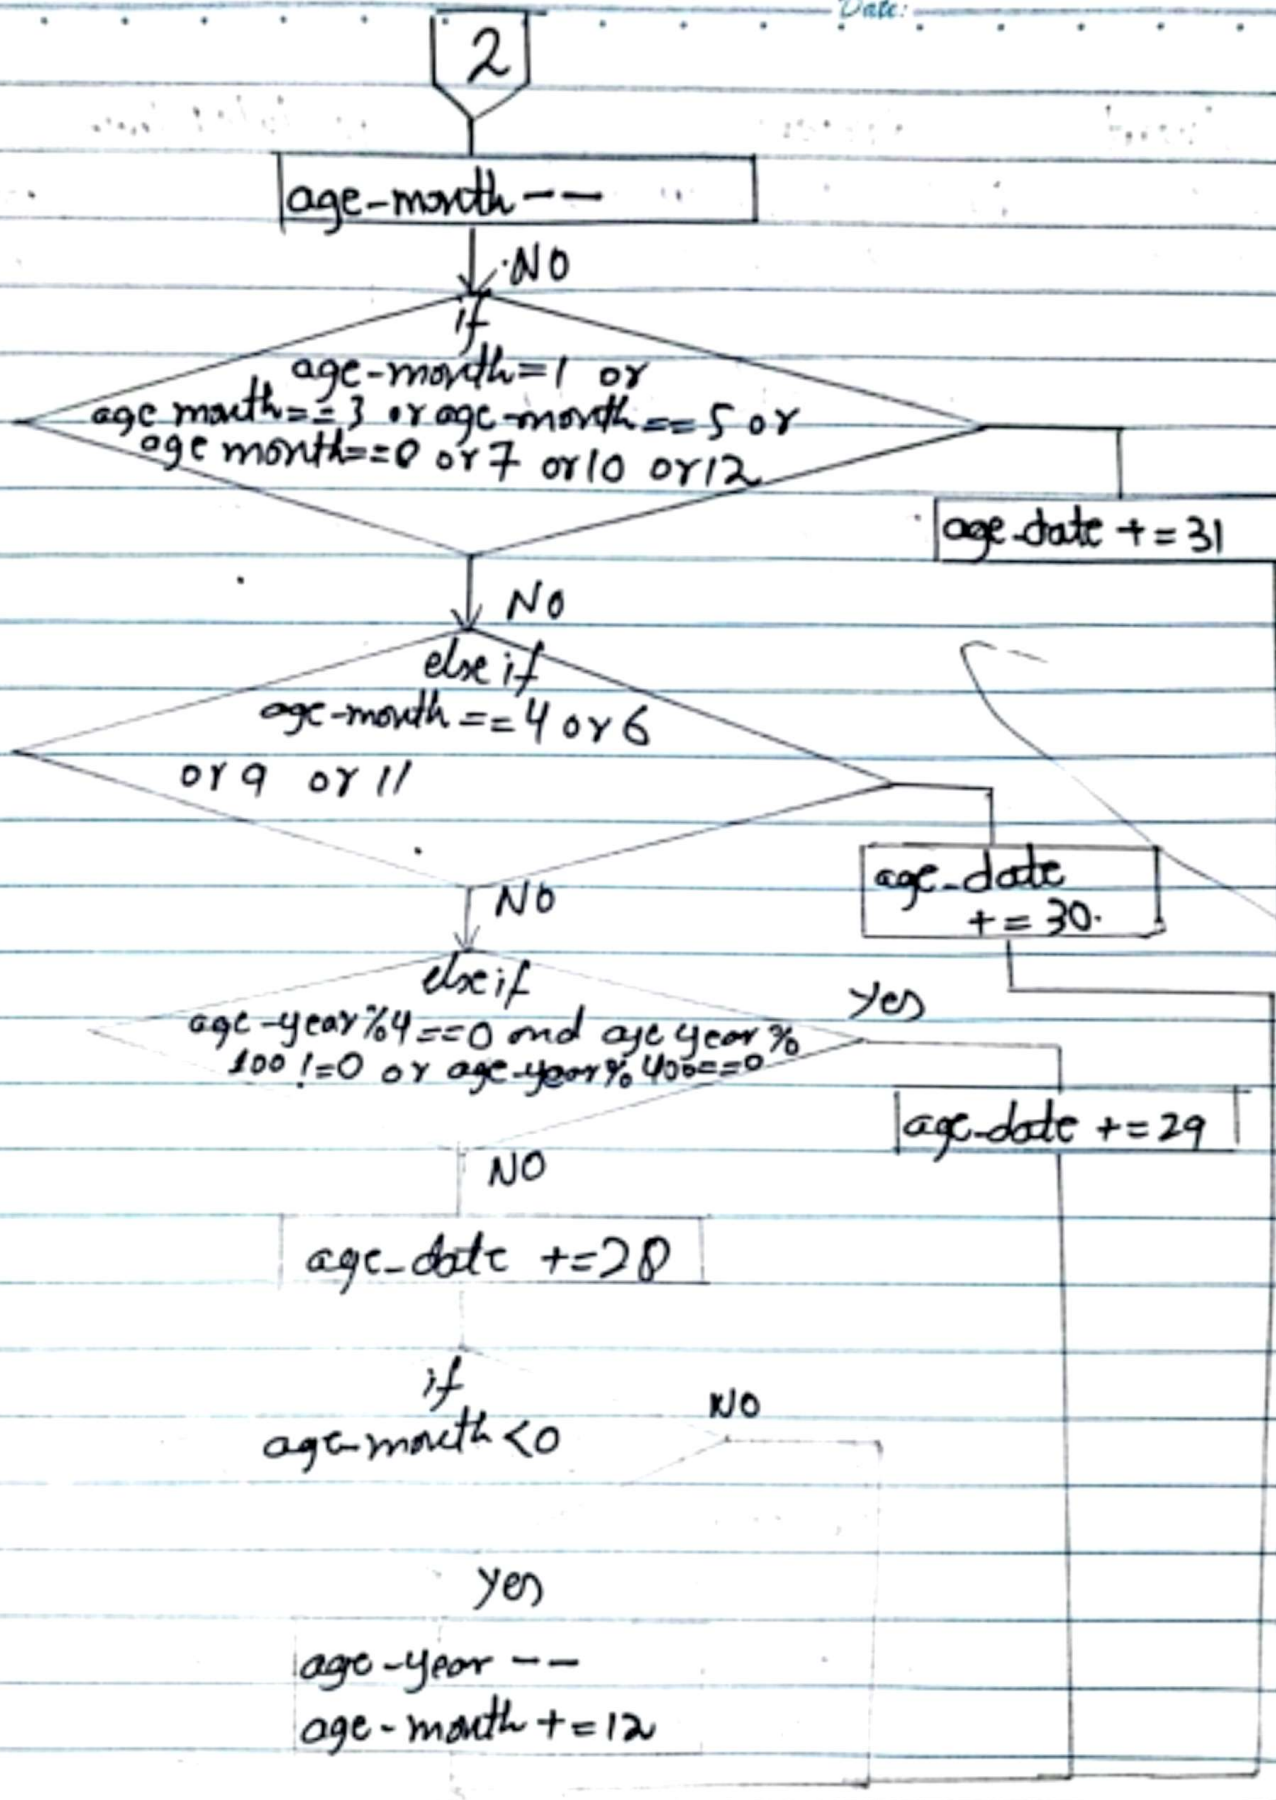 Date:
2
age-month --
NO
if
age-month=1 or
age month==3 or age-month==5 or
age month==8 or 7 or 10 or 12
age-date +=31
NO
else if
age-month ==4 or 6
or 9 or 11
age-date
+=30.
NO
else if
age-year%4==0 and age year%
100 !=0 or age-year%400==0
Yes
age-date +=29
NO
age-date +=28
if
age-month <0
NO
Yes
age-year --
age-month +=12